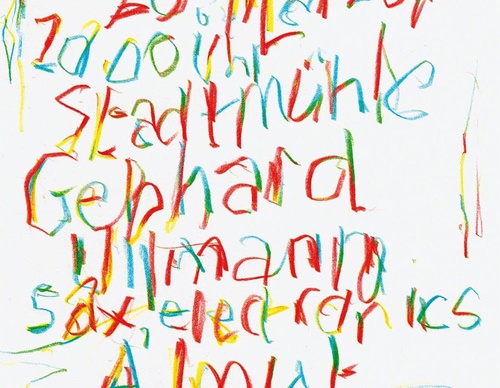 20.00 Uhr
Stadtmühle
Gebhard
Ullmann
sax, electronics
Almut